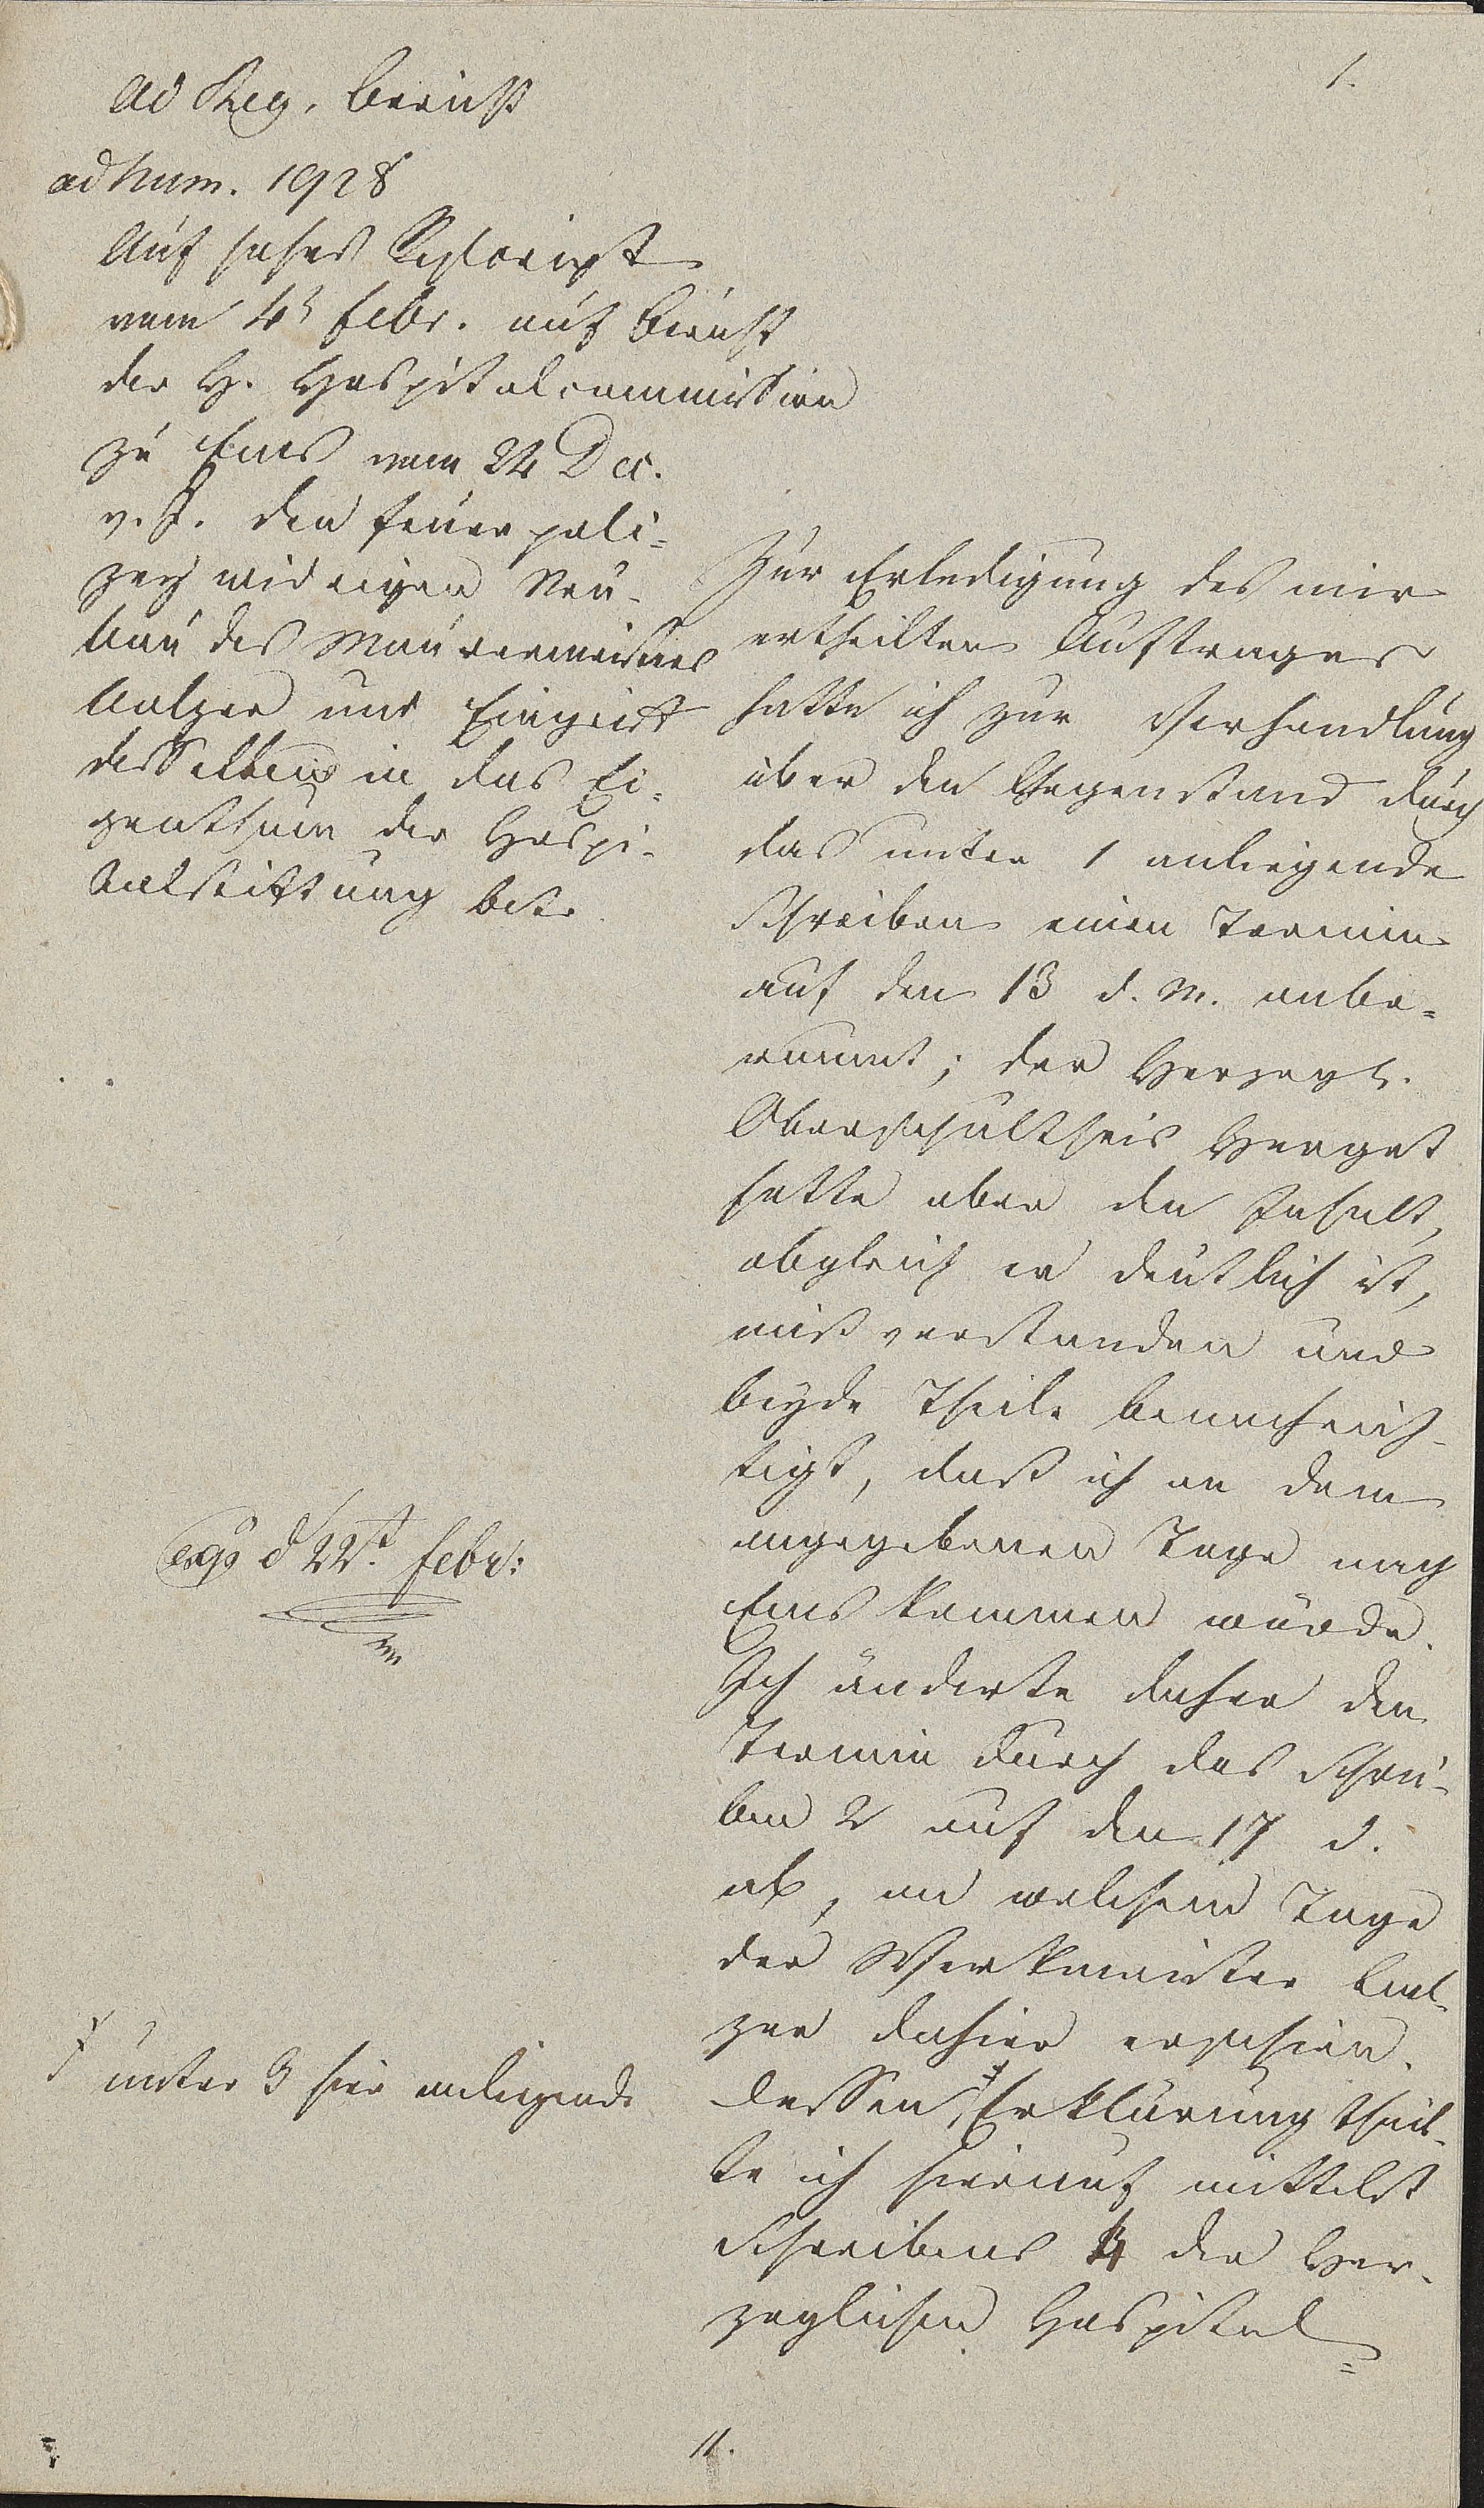 1.
ad Reg. Bericht
ad Num. 1928
Auf hohes Rescript
vom 4t Febr. auf Bericht
der H. Hospitalcommission
zu Ems vom 24 Dec.
v. J. den feuerpoli=
zeywidrigen Neu-
bau des Maurermeisters
Balzer und Eingriff
desselben in das Ei=
genthum der Hospi-
talstiftung betr.
Zur Erledigung des mir
ertheilten Auftrages
hatte ich zur Verhandlung
über den Gegenstand durch
das unter 1 anliegende
Schreiben einen Termin
auf den 13 d. M. anbe=
raumt; der Herzogl.
Oberschultheis Herget
hatte aber den Inhalt,
obgleich er deutlich ist,
mißverstanden und
beyde Theile benachrich-
tigt, daß ich an dem
angegebenen Tage nach
Ems kommen würde.
Ich änderte daher den
Termin durch das Schrei-
ben 2 auf den 17 d.
ab, an welchem Tage
der Werkmeister Bal-
zer dahier erschien.
Dessen Erklärung theil-
te ich hierauf mittelst
Schreibens 4 der Her-
zoglichen Hospital=
exp d 22t Febr:
unter 3 hier anliegende
11.